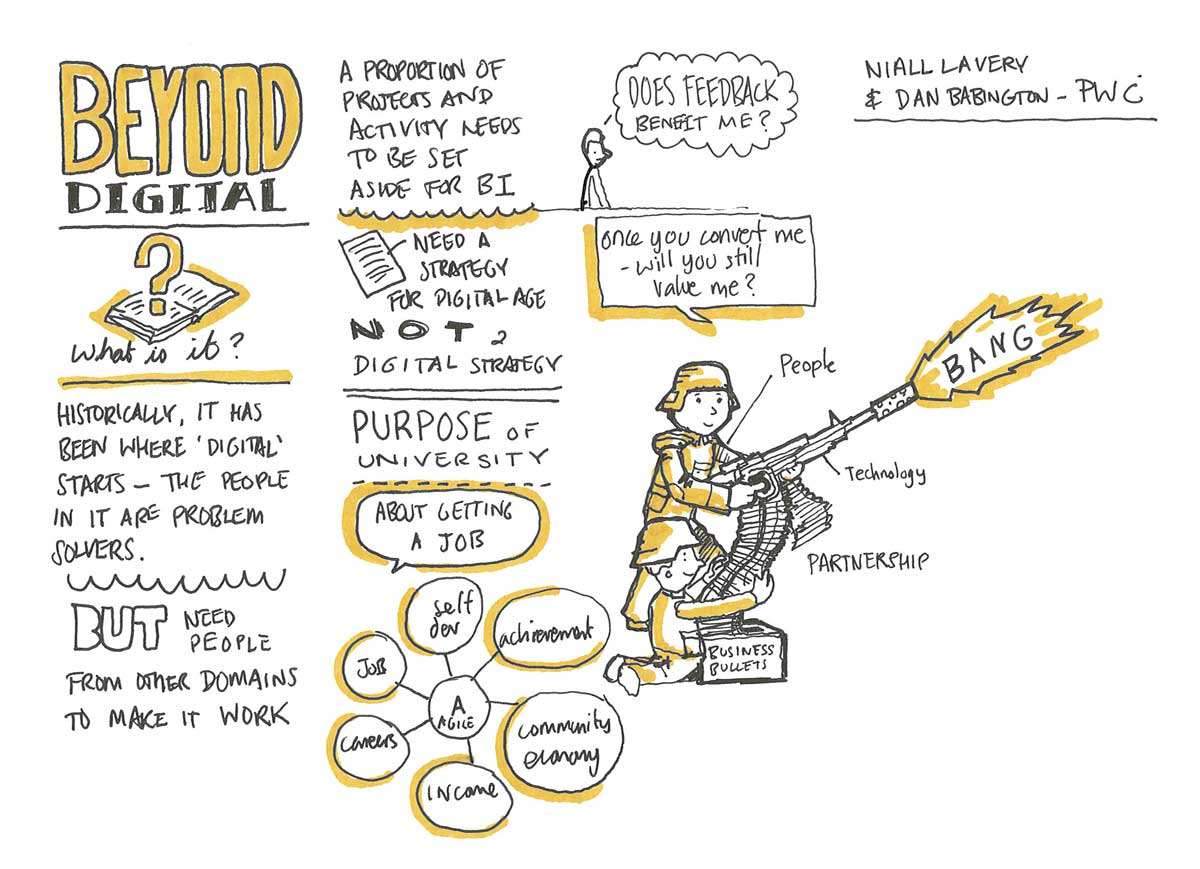 BEYOND
DIGITAL
?
What is it?
HISTORICALLY, IT HAS
BEEN WHERE 'DIGITAL'
STARTS – THE PEOPLE
IN IT ARE PROBLEM
SOLVERS.
BUT NEED
PEOPLE
FROM OTHER DOMAINS
TO MAKE IT WORK
A PROPORTION OF
PROJECTS AND
ACTIVITY NEEDS
TO BE SET
ASIDE FOR BI
NEED A
STRATEGY
FOR DIGITAL AGE
NOT 2
DIGITAL STRATEGY
PURPOSE OF
UNIVERSITY
ABOUT GETTING
A JOB
self
dev
achievement
JOB
A
AGILE
careers
community
economy
INCOME
DOES FEEDBACK
BENEFIT ME?
once you convert me
- will you still
value me?
People
BANG
Technology
PARTNERSHIP
BUSINESS
BULLETS
NIALL LAVERY
& DAN BABINGTON – PWC